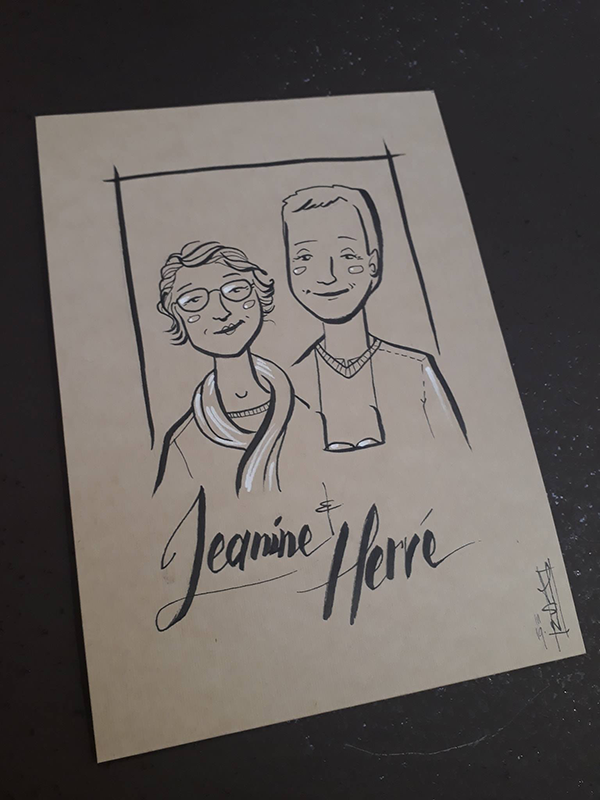 Jeanine &
Hervé